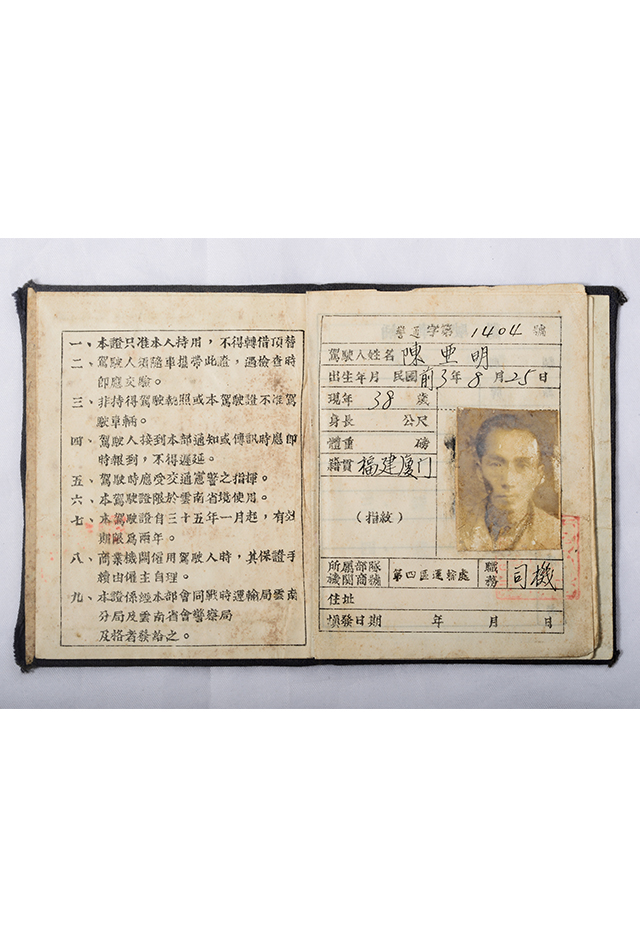 一、本證只准本人持用，不得轉借頂替
二、駕駛人須隨車攜帶此證，遇檢查時
即應交驗。
三、非持得駕駛執照或本駕駛證不准駕
駛車輛。
四、駕駛人接到本部通知或傳訊時應即
時報到，不得遲延。
五、駕駛時應受交通憲警之指揮。
六、本駕駛證限於雲南省境使用。
七、本駕駛證自三十五年一月起，有效
期限爲兩年。
八、商業機關僱用駕駛人時，其保證手
續由僱主自理。
九、本證係經本部會同戰時運輸局雲南
分局及雲南省會警察局
及格者發給之。
學通字第 1404 號
駕駛人姓名 陳亞明
出生年月 民國前3年8月25日
現年 38 歲
身長 公尺
體重 磅
籍貫 福建廈门
（指紋）
所屬部隊
機關商號 第四區運輸處 職務 司機
住址
填發日期 年 月 日